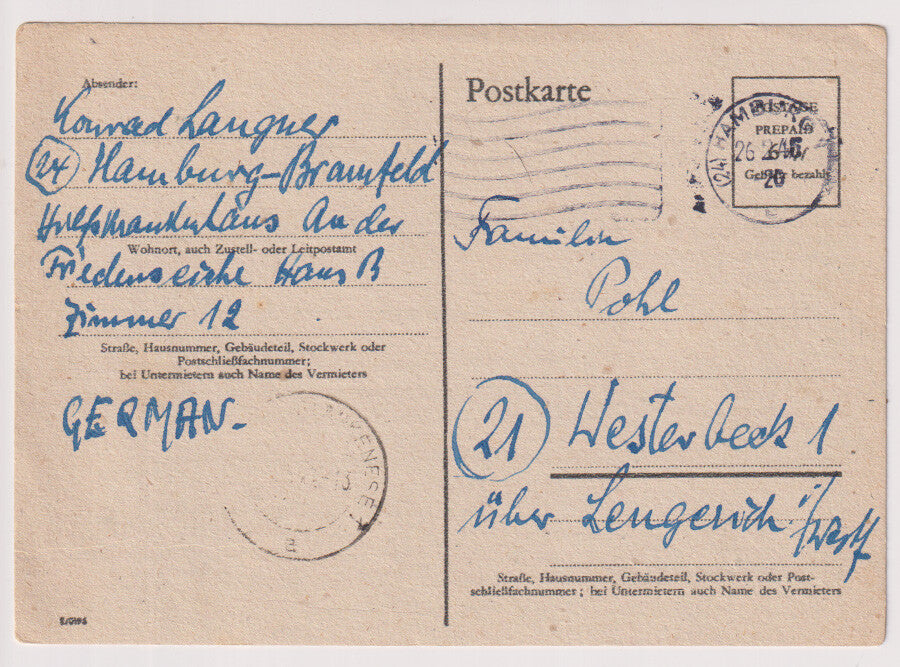 Absender:
Konrad Langner
(24) Hamburg-Bramfeld
Hilfskrankenhaus An der
Wohnort, auch Zustell- oder Leitpostamt
Friedenseiche Haus B
Zimmer 12
Straße, Hausnummer, Gebäudeteil, Stockwerk oder
Postschließfachnummer;
bei Untermietern auch Name des Vermieters
GERMAN-
Postkarte
PREPAID
(24) HAMBURG
26
20
Familie
Pohl
(21) Westerbeck 1
über Lengerich i/Westf
Straße, Hausnummer, Gebäudeteil, Stockwerk oder Post-
schließfachnummer; bei Untermietern auch Name des Vermieters